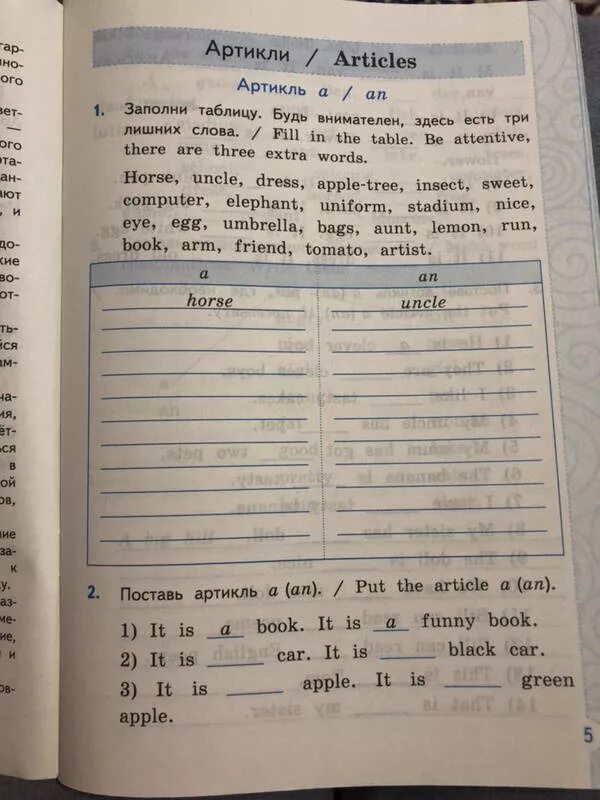 Артикли / Articles
Артикль a / an
1. Заполни таблицу. Будь внимателен, здесь есть три
лишних слова. / Fill in the table. Be attentive,
there are three extra words.
Horse, uncle, dress, apple-tree, insect, sweet,
computer, elephant, uniform, stadium, nice,
eye, egg, umbrella, bags, aunt, lemon, run,
book, arm, friend, tomato, artist.
a an
horse uncle
2. Поставь артикль a (an). / Put the article a (an).
1) It is a book. It is a funny book.
2) It is ______ car. It is ______ black car.
3) It is ______ apple. It is ______ green
apple.
5